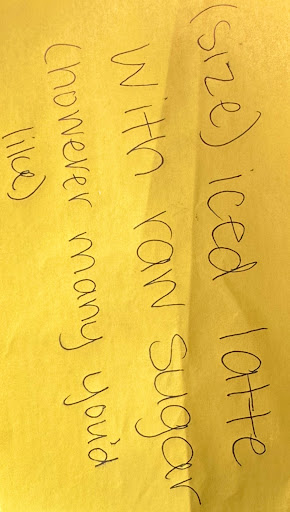 (size) iced latte
With raw sugar
(however many you'd
like)